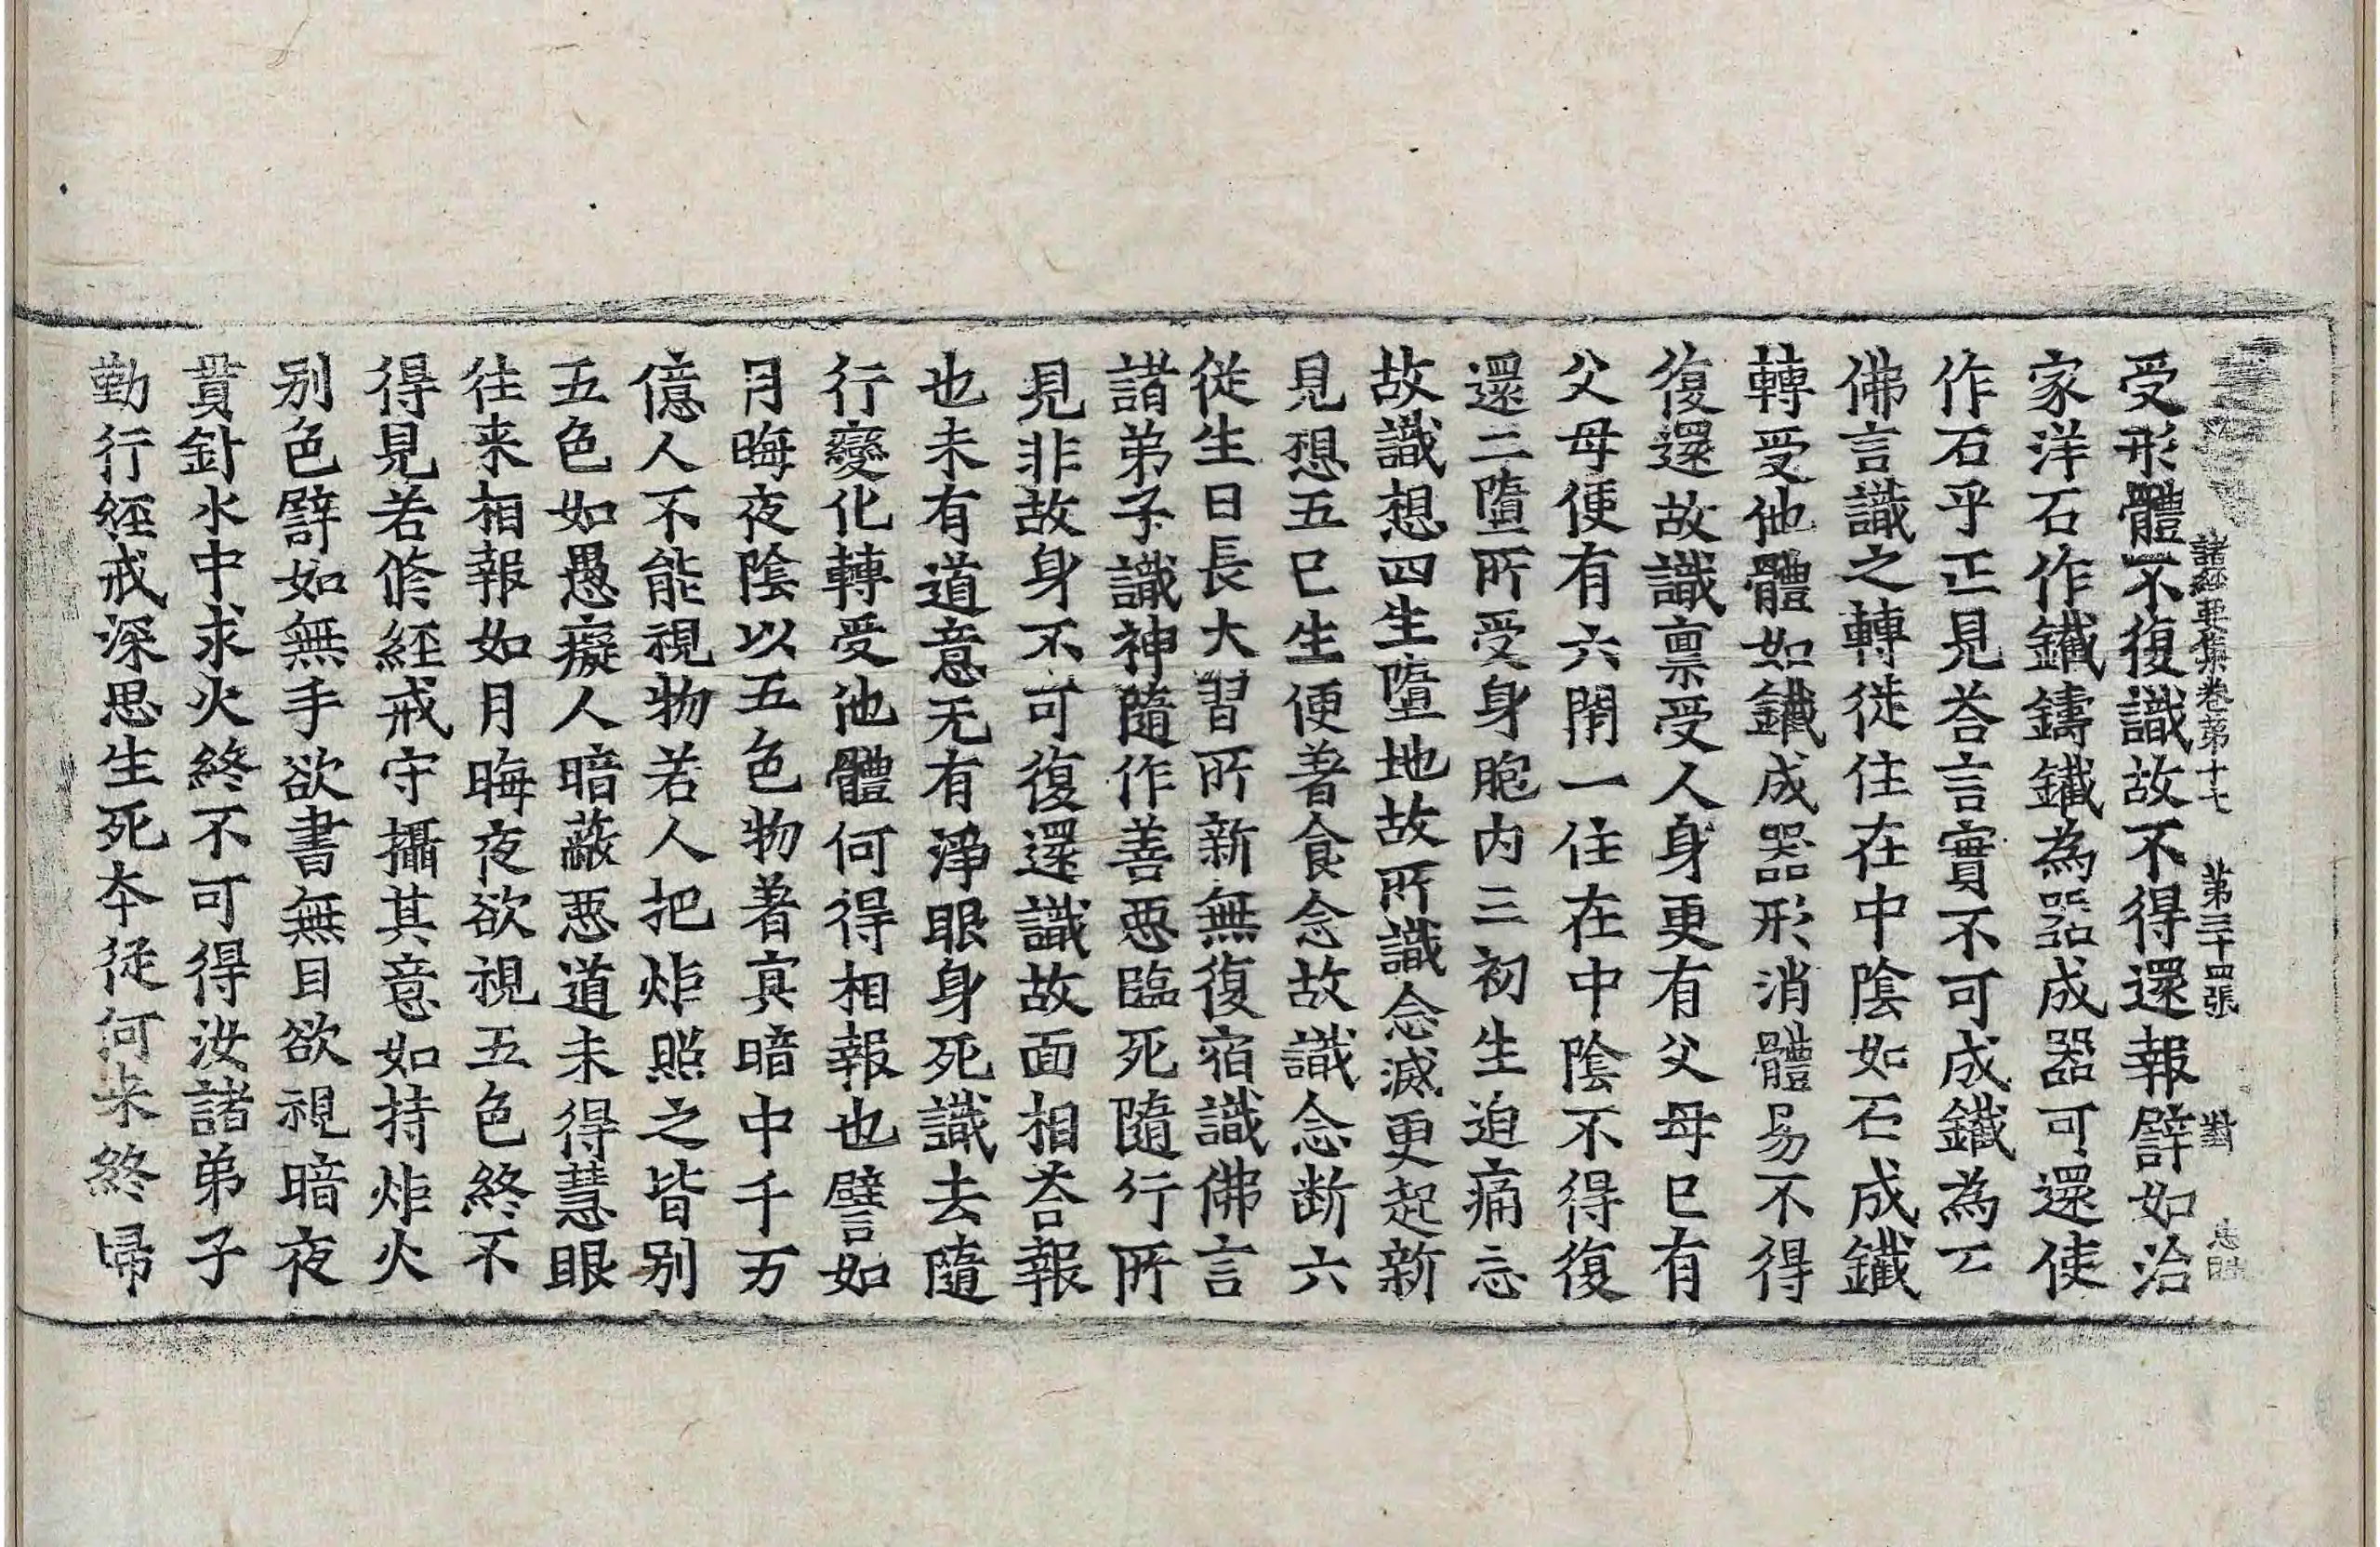 諸經要集卷第十七　第三十四張　對
受形體不復識故不得還報譬如治
家洋石作鐵鑄鐵為器成器可還使
作石乎正見荅言實不可成鐵為石
佛言識之轉徙住在中陰如石成鐵
轉受他體如鐵成器形消體易不得
復還故識禀受人身更有父母已有
父母便有六閇一住在中陰不得復
還二墮所受身胞内三初生迫痛忘
故識想四生墮地故所識念滅更起新
見想五已生便著食念故識念断六
従生日長大習所新無復宿識佛言
諸弟子識神隨作善惡臨死隨行所
見非故身不可復還識故面相荅報
也未有道意无有淨眼身死識去隨
行變化轉受他體何得相報也譬如
月晦夜陰以五色物著冥暗中千万
億人不能視物若人把炬照之皆别
五色如愚癡人暗蔽惡道未得慧眼
往来相報如月晦夜欲視五色終不
得見若脩經戒守攝其意如持炬火
别色譬如無手欲書無目欲視暗夜
貫針水中求火終不可得汝諸弟子
勤行經戒深思生死本從何来終歸